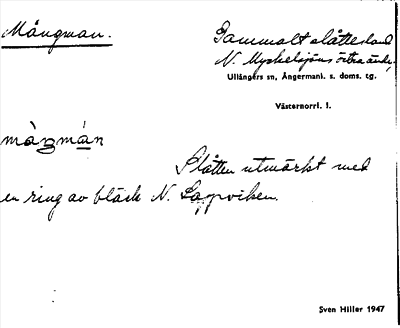 Mångman.
Gammalt slåttesland
N. Myckelsjöns östra ände,
Ullångers sn, Ångermanl. s. doms. tg.
Västernorrl. l.
màŋmán
Slåtten utmärkt med
en ring av bläck N. Lappviken.
Sven Hiller 1947